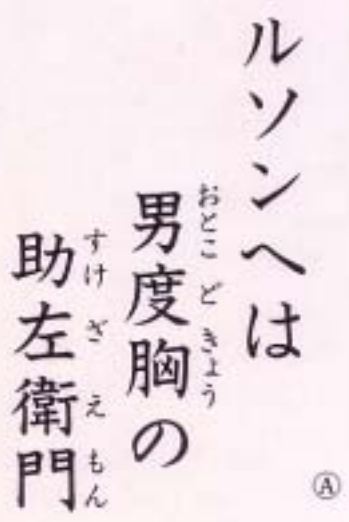 ルソンへは
男度胸の
おとこどきょう
助左衛門
すけざえもん
Ⓐ